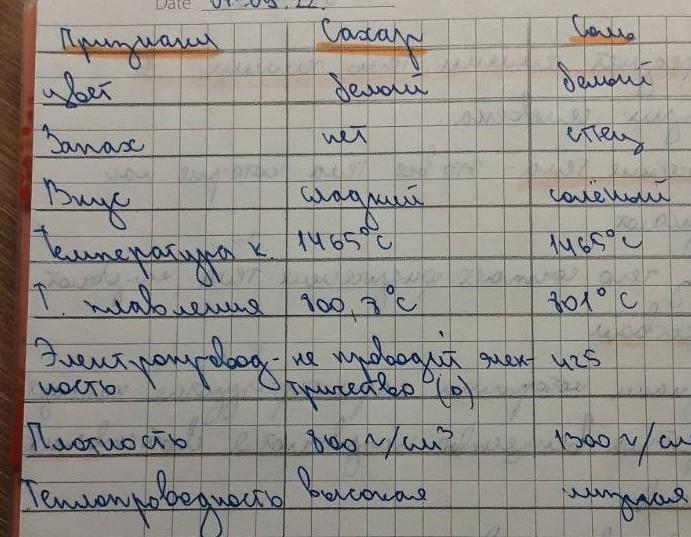 Date 07.09.22.
Признаки Сахар Соль
цвет белый белый
Запах нет спец
Вкус сладкий солёный
Температура к. 1465°C 1465°C
Т. плавления 800,8°C 801°C
Электропровод- не проводит элек- 425
ность тричество (0)
Плотность 800 г/см³ 1300 г/см
Теплопроводность высокая